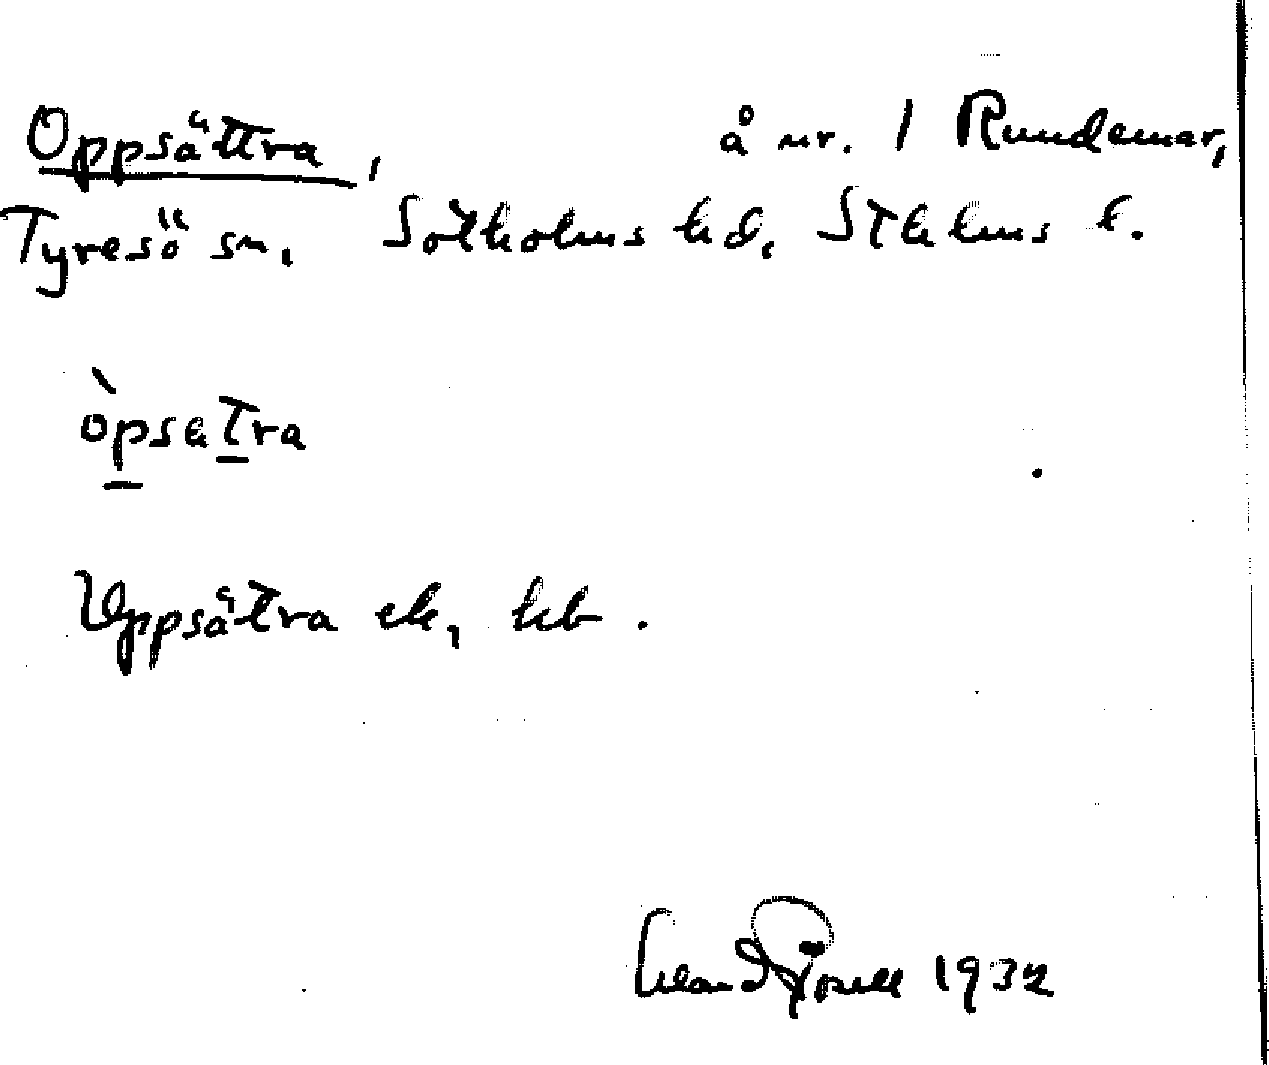 Oppsättra, å nr. 1 Rundemar,
Tyresö sn, Sotholms hd, Sthlms l.
òpsatra
Uppsätra ek, hb.
1932